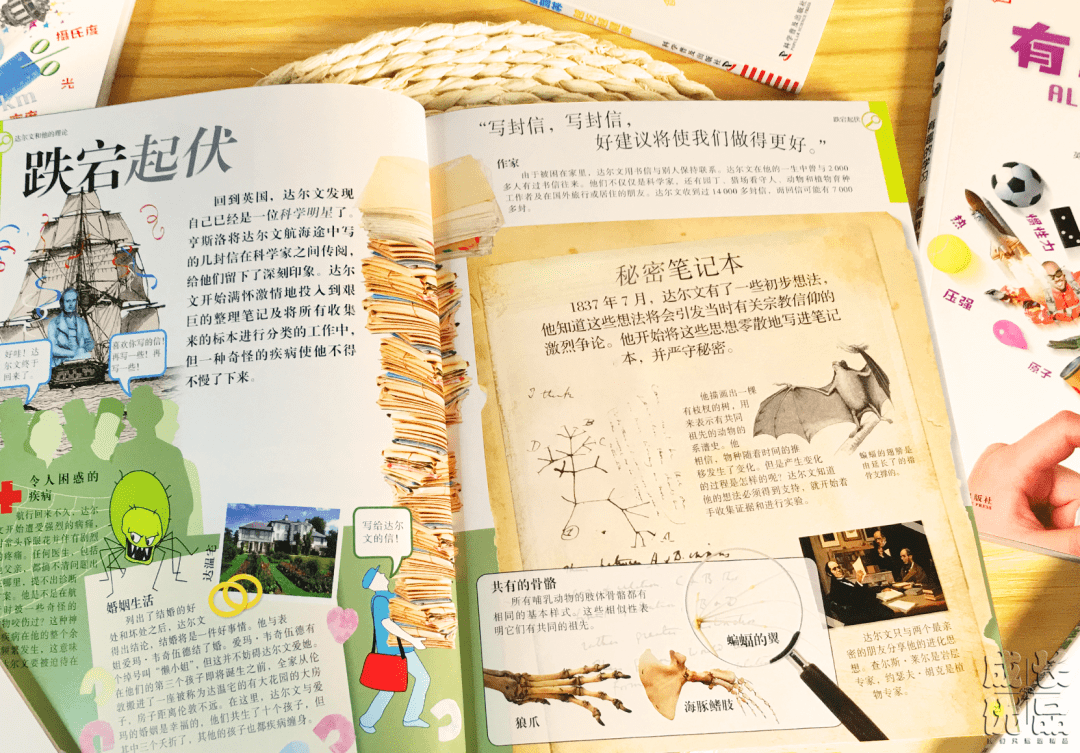 达尔文和他的理论
跌宕起伏
回到英国，达尔文发现
自己已经是一位科学明星了。
亨斯洛将达尔文航海途中写
的几封信在科学家之间传阅，
给他们留下了深刻印象。达尔
文开始满怀激情地投入到艰
巨的整理笔记及将所有收集
来的标本进行分类的工作中，
但一种奇怪的疾病使他不得
不慢了下来。
好哇！达
尔文终于
回来了。
喜欢你写的信！
再写一些！再
写一些！
令人困惑的
疾病
航行回来不久，达尔
文开始遭受强烈的病痛，
常头昏眼花并伴有剧烈
疼痛。任何医生，包括
父亲，都搞不清问题出
哪里，提不出诊断
案。他是不是在航
时被一些奇怪的
物咬伤过？这种神
疾病在他的整个余
频繁发生，这意味
达尔文要被迫待在
达温宅
婚姻生活
列出了结婚的好
处和坏处之后，达尔文
得出结论，结婚将是一件好事情。他与表
姐爱玛·韦奇伍德结了婚。爱玛·韦奇伍德有
个绰号叫“懒小姐”，但这并不妨碍达尔文爱她。
在他们的第三个孩子即将诞生之前，全家从伦
敦搬进了一座被称为达温宅的有大花园的大房
子，房子距离伦敦不远。在这里，达尔文与爱
玛的婚姻是幸福的，他们共生了十个孩子，但
其中三个夭折了，其他的孩子也都疾病缠身。
写给达尔
文的信！
跌宕起伏
“写封信，写封信，
好建议将使我们做得更好。”
作家
由于被困在家里，达尔文用书信与别人保持联系。达尔文在他的一生中曾与2 000
多人有过书信往来。他们不仅仅是科学家，还有园丁、猎场看守人、动物和植物育种
工作者及在国外旅行或居住的朋友。达尔文收到过14 000多封信，而回信可能有7 000
多封。
秘密笔记本
1837年7月，达尔文有了一些初步想法，
他知道这些想法将会引发当时有关宗教信仰的
激烈争论。他开始将这些思想零散地写进笔记
本，并严守秘密。
I think
他描画出一棵
有枝杈的树，用
来表示有共同
祖先的动物的
系谱史。他
相信，物种随着时间的推
移发生了变化。但是产生变化
的过程是怎样的呢？达尔文知道
他的想法必须得到支持，就开始着
手收集证据和进行实验。
蝙蝠的翅膀是
由延长了的指
骨支撑的。
共有的骨骼
所有哺乳动物的肢体骨骼都有
相同的基本样式。这些相似性表
明它们有共同的祖先。
狼爪
海豚鳍肢
蝙蝠的翼
达尔文只与两个最亲
密的朋友分享他的进化想
想。查尔斯·莱尔是岩层
专家，约瑟夫·胡克是植
物专家。
摄氏度
光
km
科学普及出版社
有
AL
热
惯性力
压强
原子
版社
PRESS
成长
优品